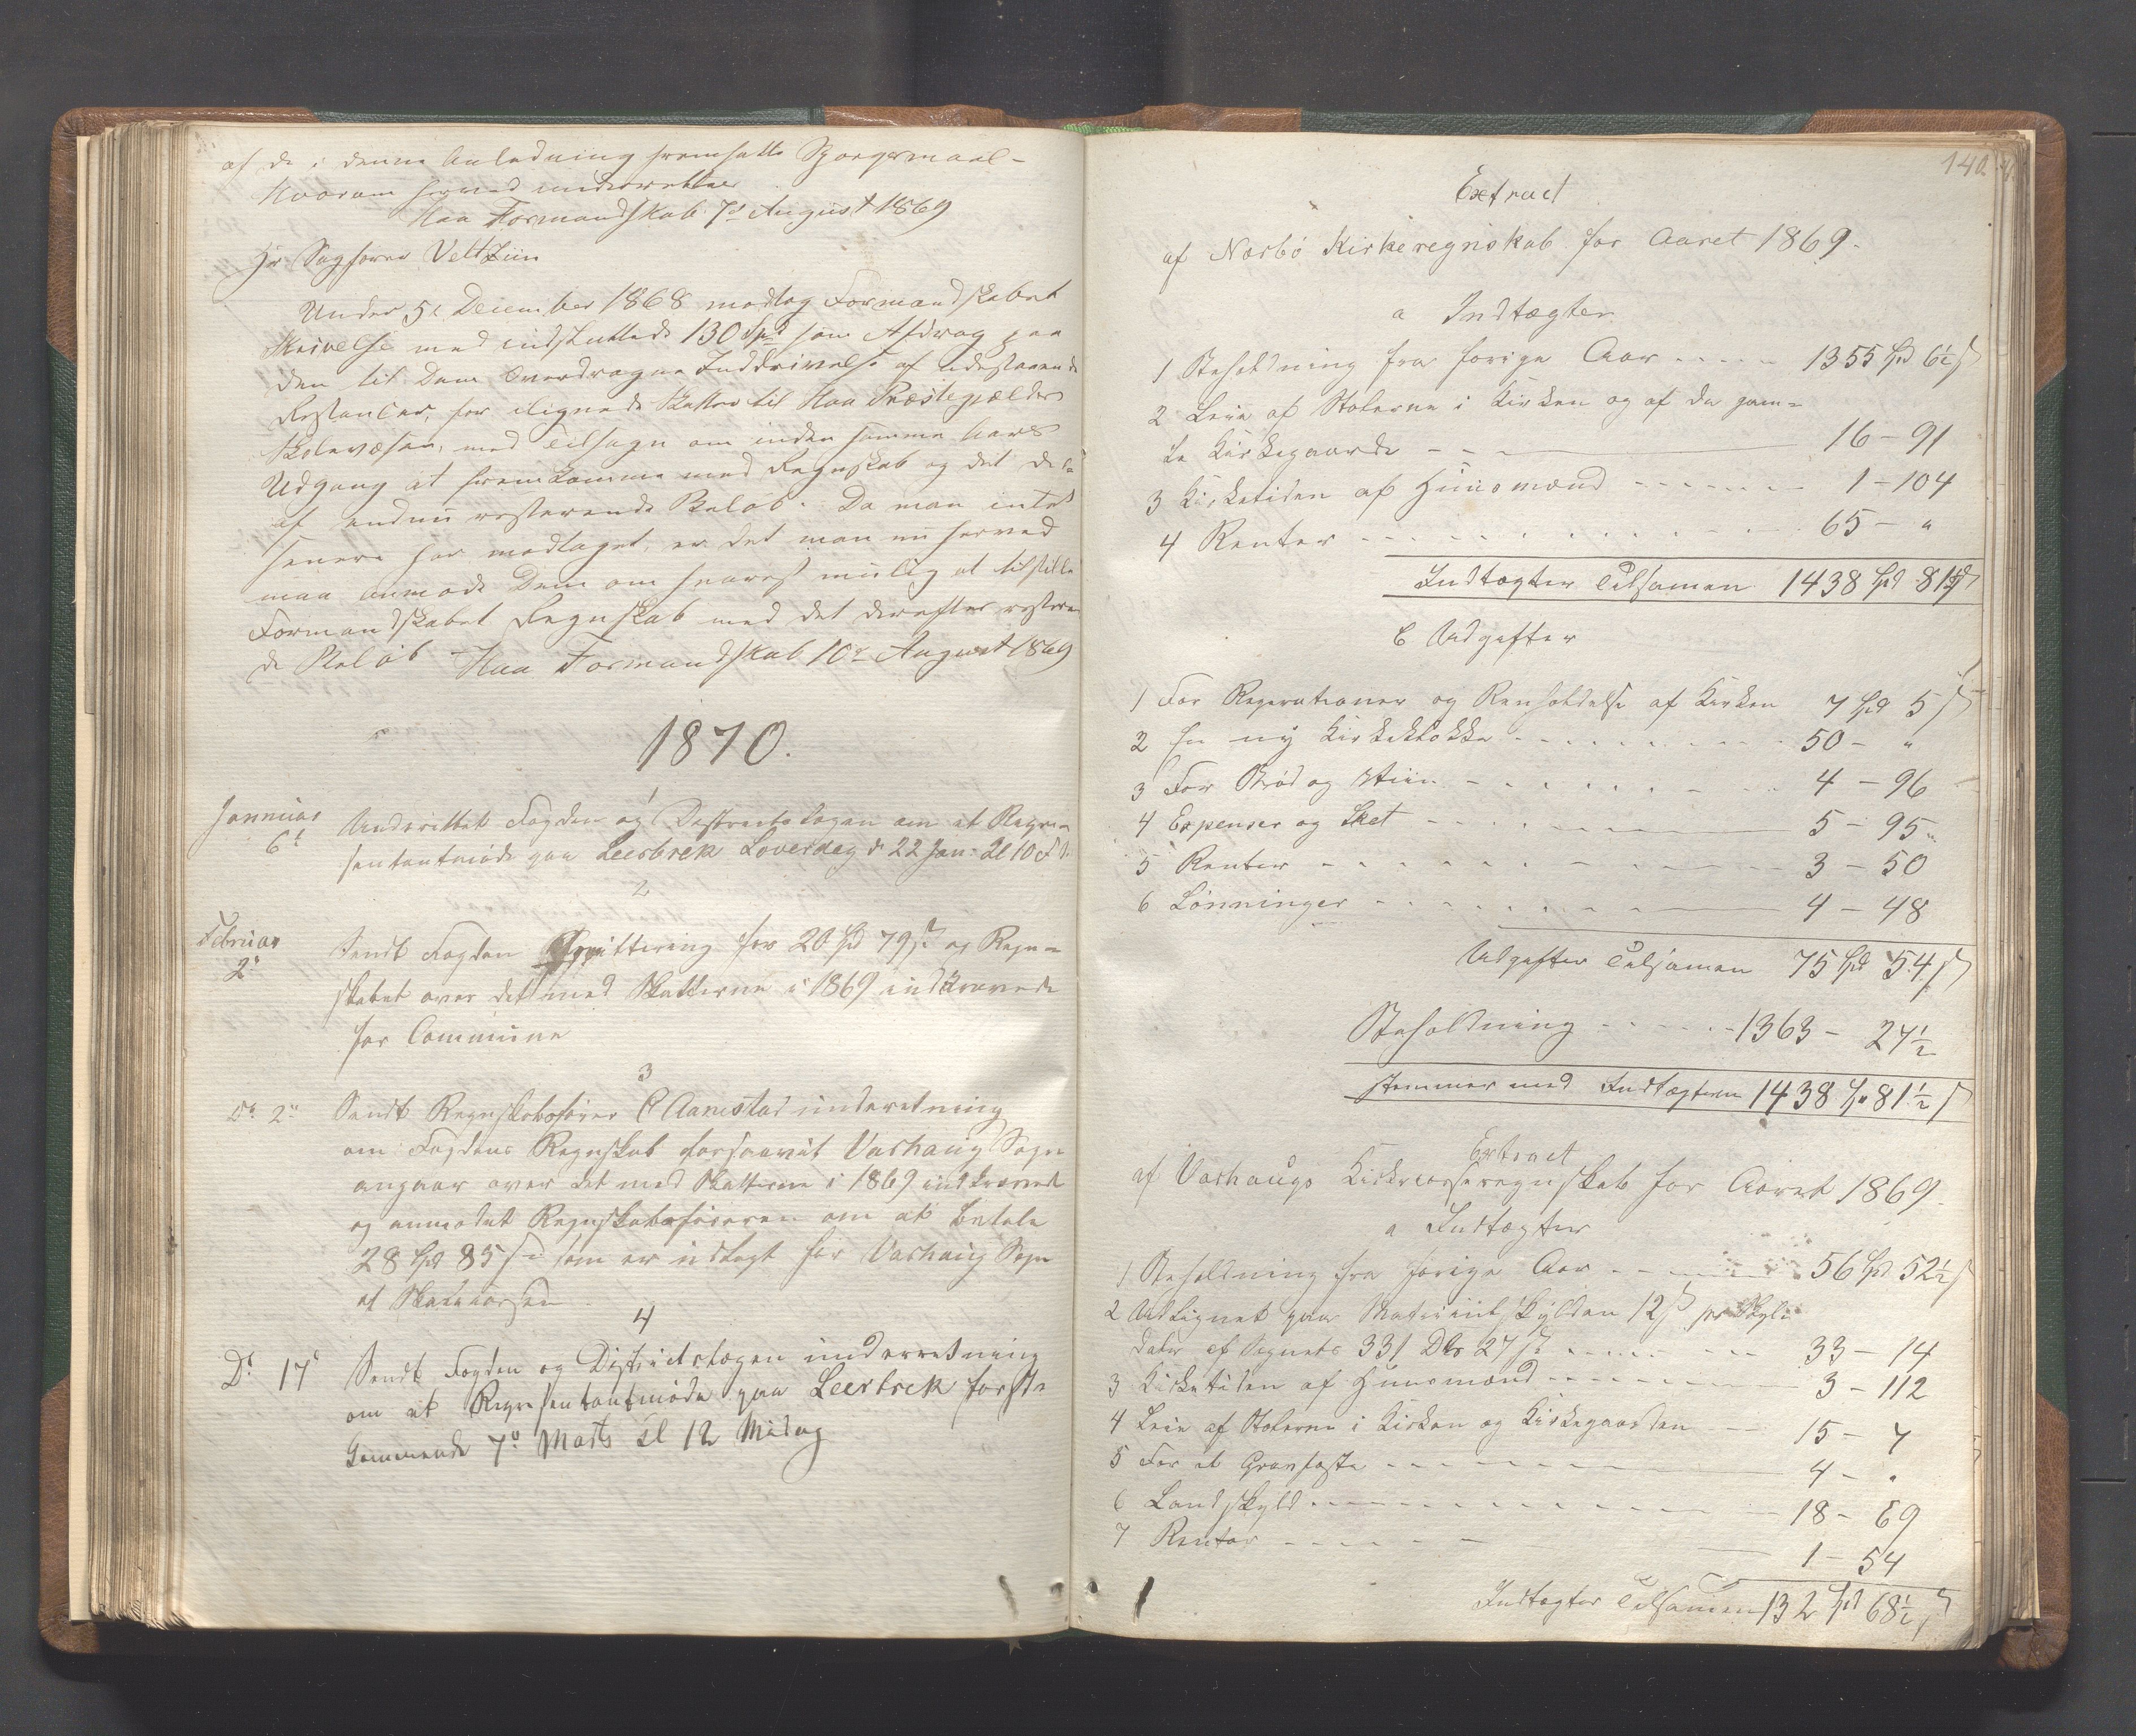 af de i denne Anledning fremsatte Spørgsmaal -
Hvorom herved underrettes
Haa Formandskab 7d August 1869
Hr Sagfører Veltziin
Under 5t December 1868 modtog Formandskabet
Skrivelse med indsluttede 130 Spd som Afdrag paa
den til Dem overdragne Inddrivelse af udestaaende
Restancer, for ilignede Skatter til Haa Præstegjælds
Skolevæsen, med Tilsagn om inden samme Aars
Udgang at fremkomme med Regnskab og det der-
af endnu resterende Beløb. Da man intet
senere har modtaget, er det man nu herved
maa anmode Dem om snarest mulig at tilstille
Formandskabet Regnskab med det derefter resteren
de Beløb - Haa Formandskab 10d August 1869
1870.
1
Januar
6t
Underrettet Fogden og Destrectslægen om at Repræ-
sentantmøde paa Leerbrek Løverdag d 22 Jan. Kl 10 F.
2
Februar
2d
Sendt Fogden Qvittering for 20 Spd 79 s og Regn-
skabet over det med Skatterne i 1869 indkrævede
for Commune
3
Do 2d
Sendt Regnskabsfører C Aanestad underetning
om Fogdens Regnskab forsaavit Varhaug Sogn
angaar over det med Skatterne i 1869 indkrævede
og anmodet Regnskabsføreren om at betale
28 Spd 85 s som er udlagt for Varhaug Sogn
af Skatcassen
4
Do 17d
Sendt Fogden og Districtslægen underretning
om at Representantmøde paa Leerbrek først-
kommende 7d Marts Kl 12 Midag
140
Extract
af Nærbø Kirkeregnskab for Aaret 1869.
a Indtægter
1 Beholdning fra forige Aar - - - - 1355 Spd 6½ s
2 Leie af Stolerne i Kirken og af de gam-
le Kirkegaarde - - - 16 - 91
3 Kirketiden af Huusmænd - - - - - - 1 - 104
4 Renter - - - - - - 65 - "
Indtægter Tilsamen 1438 Spd 81½ s
b Udgifter
1 For Reperationer og Renholdelse af Kirken 7 Spd 5 s
2 En ny Kirkeklokke - - - - - - 50 - "
3 For Brød og Viin - - - - - - 4 - 96
4 Expenser og Sket - - - - - 5 - 95
5 Renter - - - - - - 3 - 50
6 Lønninger - - - - - - 4 - 48
Udgifter Tilsamen 75 Spd 54 s
Beholdning - - - - - 1363 - 27½
stemmer med Indtægterne 1438 Sp 81½ s
Extract
af Varhaugs Kirkecasseregnskab for Aaret 1869.
a Indtægter
1 Beholdning fra forige Aar - - - 56 Spd 52½ s
2 Udlignet paa Matriculskylden 12 s pr Skyl-
daler af Sognets 331 Dlr 27 s - - - - - 33 - 14
3 Kirketiden af Huusmænd - - - - - - 3 - 112
4 Leie af Stolerne i Kirken og Kirkegaarden - - 15 - 7
5 For et Gravfæste - - - - - 4 - "
6 Landskyld - - - - - - 18 - 69
7 Renter - - - - - 1 - 54
Indtægter Tilsamen 132 Spd 68½ s